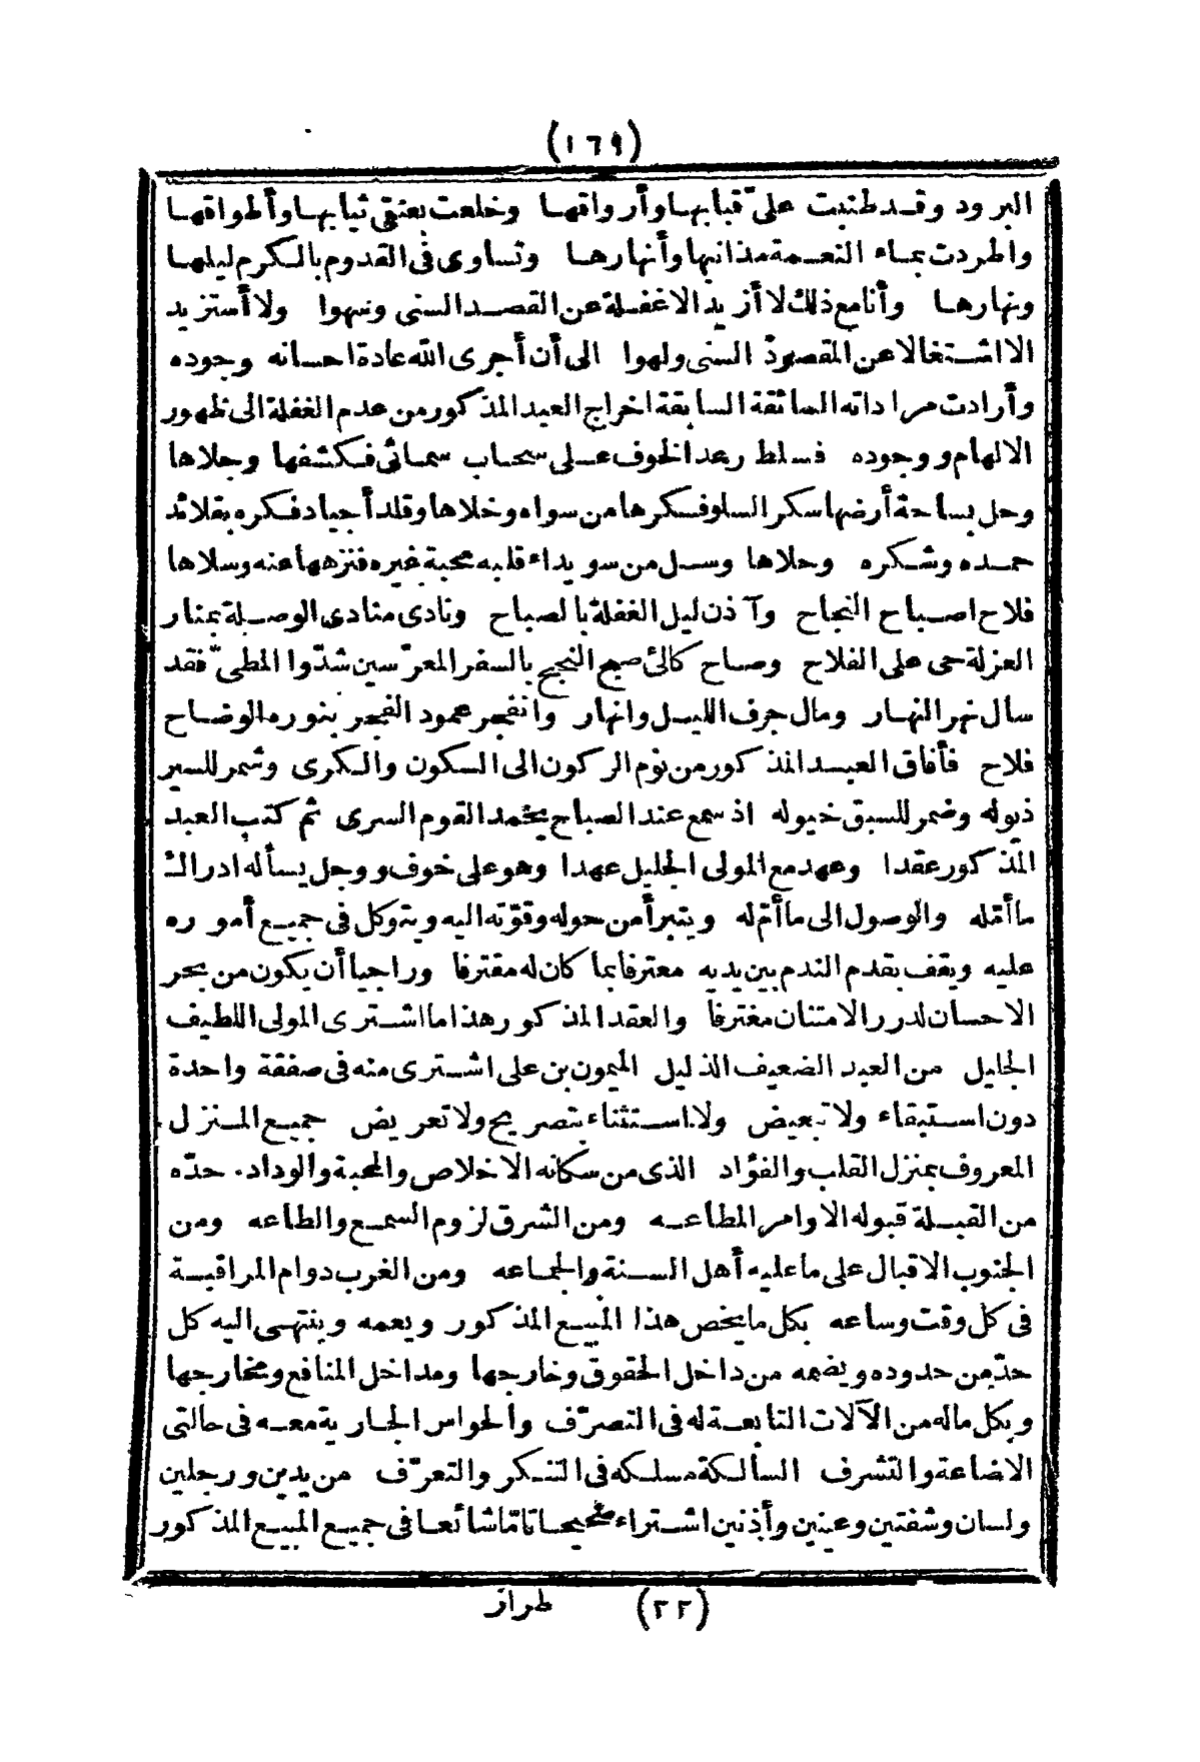 (١٦٩)
البرود وقد طنبت علىّ قبابها وأرواقها وخلعت بعنقى ثيابها وأطواقها
واطردت بماء النعمة مذانبها وأنهارها وتساوى فى القدوم بالكرم ليلها
ونهارها وأنا مع ذلك لا أزيد الا غفلة عن القصد السنى وسهوا ولا أستزيد
الا اشتغالا عن المقصود السنى ولهوا الى أن أجرى الله عادة احسانه وجوده
وأرادت مراداته السائقة السابقة اخراج العبد المذكور من عدم الغفلة الى ظهور
الالهام ووجوده فسلط رعد الخوف على سحاب سمائى فكشفها وجلاها
وحل بساحة أرضها سكر السلو فسكرها من سواه وخلاها وقلد أجياد فكره بقلائد
حمده وشكره وحلاها وسل من سويداء قلبه محبة غيره فنزهها عنه وسلاها
فلاح اصباح النجاح وآذن ليل الغفلة بالصباح ونادى منادى الوصلة بمنار
العزلة حى على الفلاح وصاح كالئ صبح النجح بالسفر المعرّسين شدّوا المطىّ فقد
سال نهر النهار ومال جرف الليل وانهار وانفجر عمود الفجر بنوره الوضاح
فلاح فأفاق العبد المذكور من نوم الركون الى السكون والكرى وشمر للسير
ذيوله وضمر للسبق خيوله اذ سمع عند الصباح يحمد القوم السرى ثم كتب العبد
المذكور عقدا وعهد مع المولى الجليل عهدا وهو على خوف ووجل يسأله ادراك
ما أمّله والوصول الى ما أمّ له ويتبرأ من حوله وقوّته اليه ويتوكل فى جميع أموره
عليه ويقف بقدم الندم بين يديه معترفا بما كان له مقترفا وراجيا أن يكون من بحر
الاحسان لدرر الامتنان مغترفا والعقد المذكور هذا ما اشترى المولى اللطيف
الجليل من العبد الضعيف الذليل الميمون بن على اشترى منه فى صفقة واحدة
دون استبقاء ولا تبعيض ولا استثناء بتصريح ولا تعريض جميع المنزل
المعروف بمنزل القلب والفؤاد الذى من سكانه الاخلاص والمحبة والوداد. حدّه
من القبلة قبوله الاوامر المطاعه ومن الشرق لزوم السمع والطاعه ومن
الجنوب الاقبال على ما عليه أهل السنة والجماعه ومن الغرب دوام المراقبة
فى كل وقت وساعه بكل ما يخص هذا المبيع المذكور ويعمه وينتهى اليه كل
حدّ من حدوده ويضمه من داخل الحقوق وخارجها ومداخل المنافع ومخارجها
وبكل ماله من الآلات التابعة له فى التصرّف والحواس الجارية معه فى حالتى
الاضاعة والتشرف السالكة مسلكه فى التنكر والتعرّف من يدين ورجلين
ولسان وشفتين وعينين وأذنين اشتراء صحيحا تامّا شائعا فى جميع المبيع المذكور
(٢٢) طراز